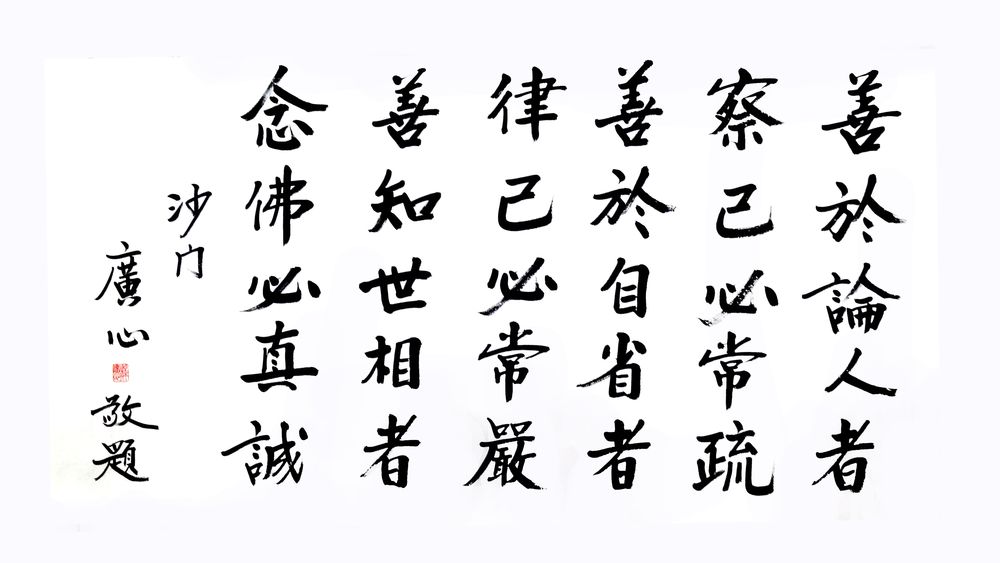 善於論人者
察己必常疏
善於自省者
律己必常嚴
善知世相者
念佛必真誠
沙门
廣心
敬題